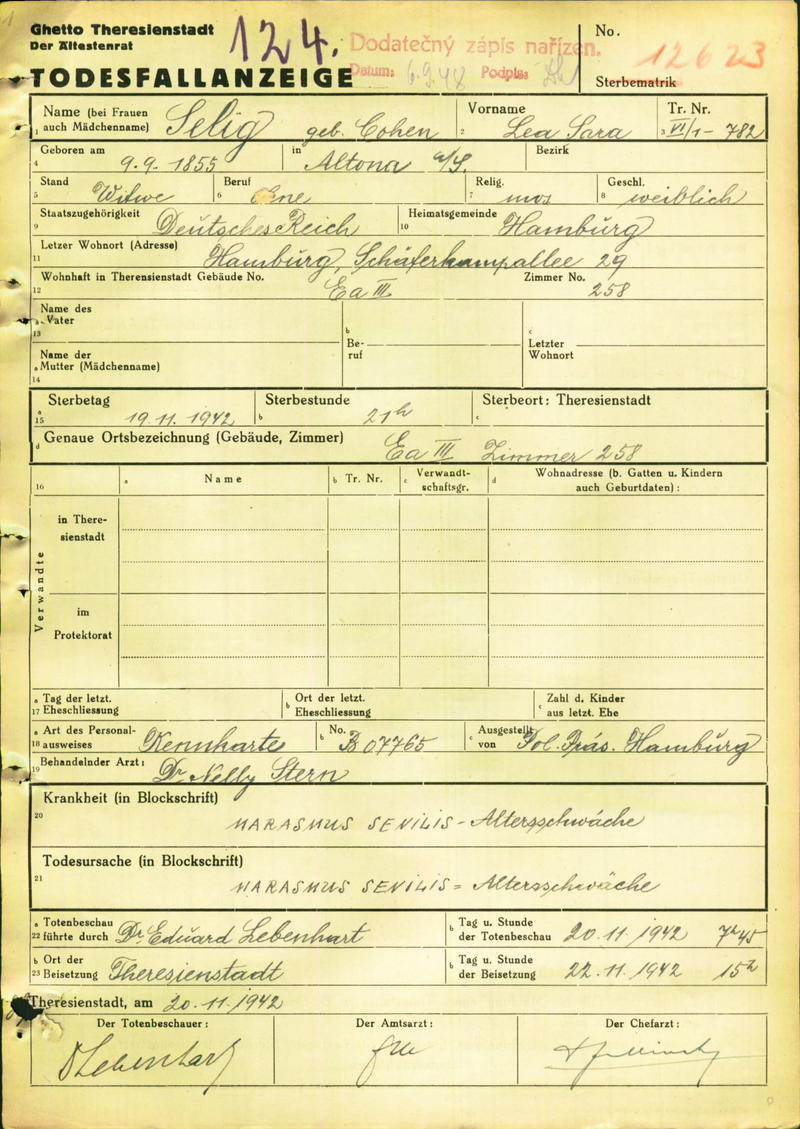 Ghetto Theresienstadt
Der Ältestenrat
124.
Dodatečný zápis nařízen.
Datum: 6.9.48 Podpis:
No.
12623
TODESFALLANZEIGE
Sterbematrik
Name (bei Frauen auch Mädchenname) Selig geb. Cohen
1
Vorname Lea Sara
2
Tr. Nr.
3 VI/1 - 782
Geboren am 9.9. 1855
4
in Altona a/S.
Bezirk
Stand Witwe
5
Beruf Ohne
6
Relig. mos
7
Geschl. weiblich
8
Staatszugehörigkeit Deutsches Reich
9
Heimatsgemeinde Hamburg
10
Letzer Wohnort (Adresse) Hamburg, Schäferkampallee 29
11
Wohnhaft in Therensienstadt Gebäude No. Ea III
Zimmer No. 258
12
Name des
a Vater
13
b
Be-
ruf
c
Letzter
Wohnort
Name der
a Mutter (Mädchenname)
14
a
15
Sterbetag 19.11. 1942
Sterbestunde 21h
b
Sterbeort: Theresienstadt
c
d Genaue Ortsbezeichnung (Gebäude, Zimmer) Ea III Zimmer 258
16
a Name
b Tr. Nr.
c Verwandt-
schaftsgr.
d Wohnadresse (b. Gatten u. Kindern
auch Geburtdaten) :
Verwandte
in There-
sienstadt
im
Protektorat
a Tag der letzt.
17 Eheschliessung
b Ort der letzt.
Eheschliessung
c Zahl d. Kinder
aus letzt. Ehe
a Art des Personal-
18 ausweises Kennkarte
b No. B 07765
c Ausgestellt
von Pol. Präs. Hamburg
19 Behandelnder Arzt: Dr. Nelly Stern
Krankheit (in Blockschrift)
20 MARASMUS SENILIS - Altersschwäche
Todesursache (in Blockschrift)
21 MARASMUS SENILIS = Altersschwäche
a Totenbeschau
22 führte durch Dr. Eduard Lebenhart
b Tag u. Stunde
der Totenbeschau 20.11.1942 7h45
b Ort der
23 Beisetzung Theresienstadt
b Tag u. Stunde
der Beisetzung 22.11.1942 15h
Theresienstadt, am 20.11.1942
Der Totenbeschauer:
Der Amtsarzt:
Der Chefarzt: